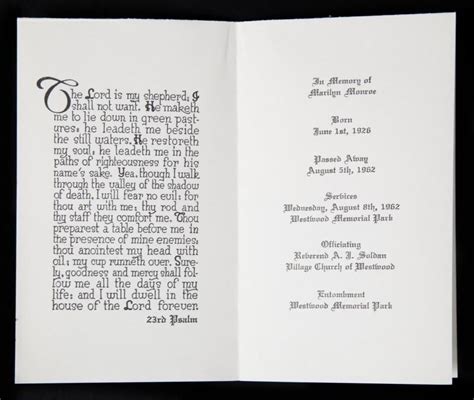 The Lord is my shepherd; I
shall not want. He maketh
me to lie down in green past-
ures: he leadeth me beside
the still waters. He restoreth
my soul: he leadeth me in the
paths of righteousness for his
name's sake. Yea, though I walk
through the valley of the shadow
of death, I will fear no evil: for
thou art with me; thy rod and
thy staff they comfort me. Thou
preparest a table before me in
the presence of mine enemies:
thou anointest my head with
oil; my cup runneth over. Sure-
ly, goodness and mercy shall fol-
low me all the days of my
life: and I will dwell in the
house of the Lord forever.
23rd Psalm
In Memory of
Marilyn Monroe
Born
June 1st, 1926
Passed Away
August 5th, 1962
Services
Wednesday, August 8th, 1962
Westwood Memorial Park
Officiating
Reverend A. J. Soldan
Village Church of Westwood
Entombment
Westwood Memorial Park